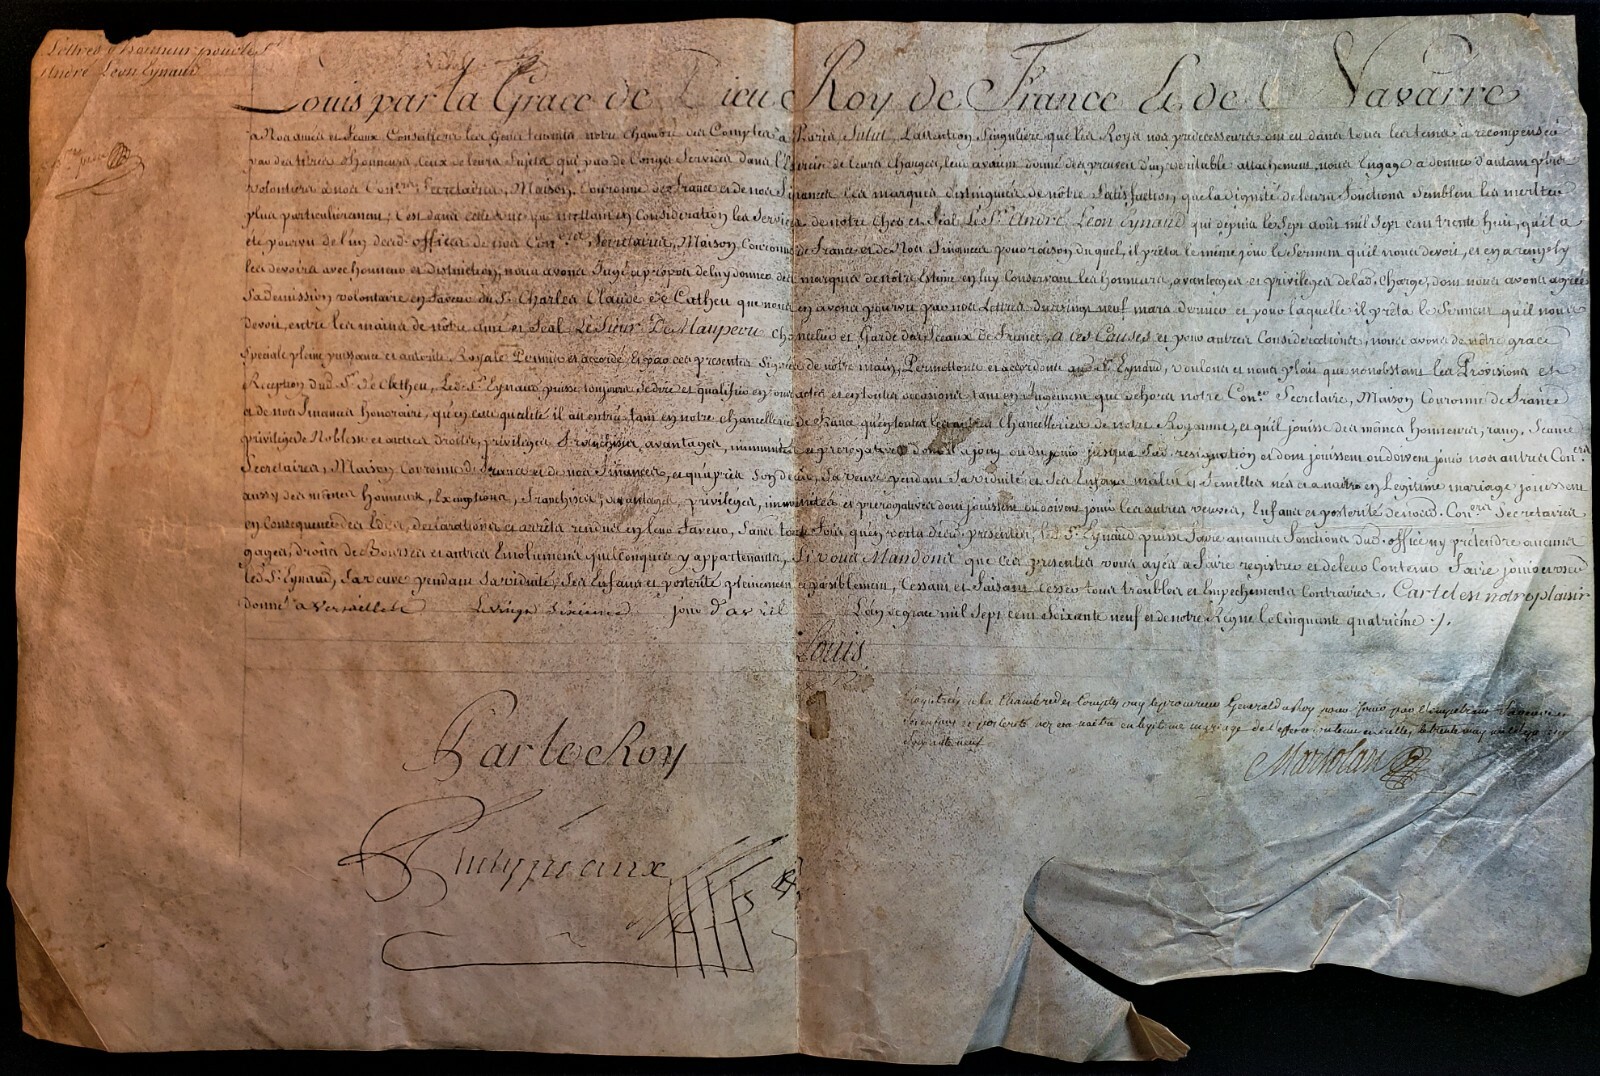 Lettres d'honneur pour le Sr
André Léon Eynaud
Louis par la Grace de Dieu Roy de France Et de Navarre
a Nos amés et feaux Conseillers les Gens tenants notre chambre des Comptes a Paris Salut, L'attention Singuliere que les Roys nos prédecesseurs ont eu dans tous les tems a récompenser
par des titres d'honneurs Ceux de leurs Sujets qui par de Longs Services dans l'Exercice de leurs Charges, leur avaient donné des preuves d'un veritable attachement, nous Engage a donner d'autant plus
volontiers a nos Coners Secretaires, Maison, Couronne de France et de nos finances les marques distinguées de nôtre Satisfaction que la dignité de leurs fonctions Semblent les meriter
plus particulierement; C'est dans cette vüe que mettant en Consideration les Services de notre Cher et féal Le Sr. André Léon Eynaud qui depuis le Sept août mil Sept cent trente huit, qu'il a
été pourvu de l'un desd. offices de nos Coners Secretaires, Maison Couronne de France et de Nos finances pour raison duquel, il prêta le même jour le Serment qu'il nous devoit, et en a remply
les devoirs avec honneur et distinction, nous avons Jugé a propos de luy donner des marques de nôtre Estime en luy Conservant les honneurs, avantages et privileges de lad. Charge, dont nous avons agréé
Sa demission volontaire en faveur du Sr. Charles Claude de Catheu que nous en avons pourvu par nos Lettres du vingt neuf mars dernier et pour laquelle il prêta le Serment qu'il nous
devoit, entre les mains de nôtre amé et féal Le Sieur De Maupeou chancelier et Garde des Sceaux de France, a ces Causes et pour autres Considerations, nous avons de nôtre grace
Speciale pleine puissance et autorité Royale Permis et accordé, Et par ces presentes Signées de nôtre main, Permettons et accordons aud. Sr. Eynaud, voulons et nous plait que nonobstant les Provisions et
Reception dud. Sr. de Catheu, Led. Sr. Eynaud puisse toujours Se dire et qualifier en tous actes et en toutes occasions tant en Jugement que dehors notre Coner Secretaire, Maison Couronne de France
et de nos finances honoraire, qu'en cette qualité il ait entrée tant en notre chancellerie de France qu'en toutes les autres Chancelleries de notre Royaume, et qu'il jouisse des mêmes honneurs, rang, Seance
privileges de Noblesse et autres droits, privileges franchises, avantages, immunités et prerogatives dont il a joui ou du jouir jusqu'a Sad. resignation et dont jouissent ou doivent jouir nos autres Coners
Secretaires, Maison Couronne de france et de nos finances, et qu'après Son deces, Sa veuve pendant Sa viduité et Ses Enfans mâles et femelles nés et a naître en Légitime mariage jouissent
aussy des mêmes honneurs, Exemptions, franchises, avantages, privileges, immunités et prerogatives dont jouissent ou doivent jouir les autres veuves, Enfans et posterité de nosd. Coners Secretaires
en Consequence des Edits, declarations et arrêts rendus en leur faveur, Sans toutefois qu'en vertu desd. presentes, led. Sr. Eynaud puisse faire aucunes fonctions dud. office ny prétendre aucuns
gages, droits de Bourses et autres Emolumens quelconques y appartenants, Si vous Mandons que ces presentes vous ayés a faire registrer et de leur Contenu faire jouir et user
led. Sr. Eynaud, Sa veuve pendant Sa viduité, Ses Enfans et posterité pleinement et paisiblement, Cessant et faisant cesser tous troubles et Empechements Contraires. Car tel est notre plaisir
donné a Versailles Le vingt Sixieme jour d'avril L'an de grace mil Sept cent Soixante neuf et de notre Regne le cinquante quatrieme ./.
Louis
Par le Roy
Phelypeaux
Registrées en la Chambre des Comptes ouy le procureur General du Roy pour Jouir par l'Impetrant Sa veuve et
Ses enfans et posterité nés et a naître en legitime mariage de l'effet et contenu en icelles, le trente may mil Sept cent
Soixante neuf
Marsolan